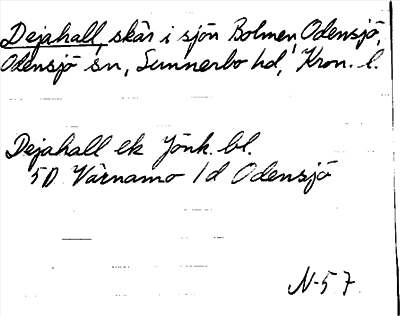 Dejahall, skär i sjön Bolmen, Odensjö,
Odensjö sn, Sunnerbo hd, Kron. l.
Dejahall ek Jönk. bl.
5D Värnamo 1d Odensjö
N-57